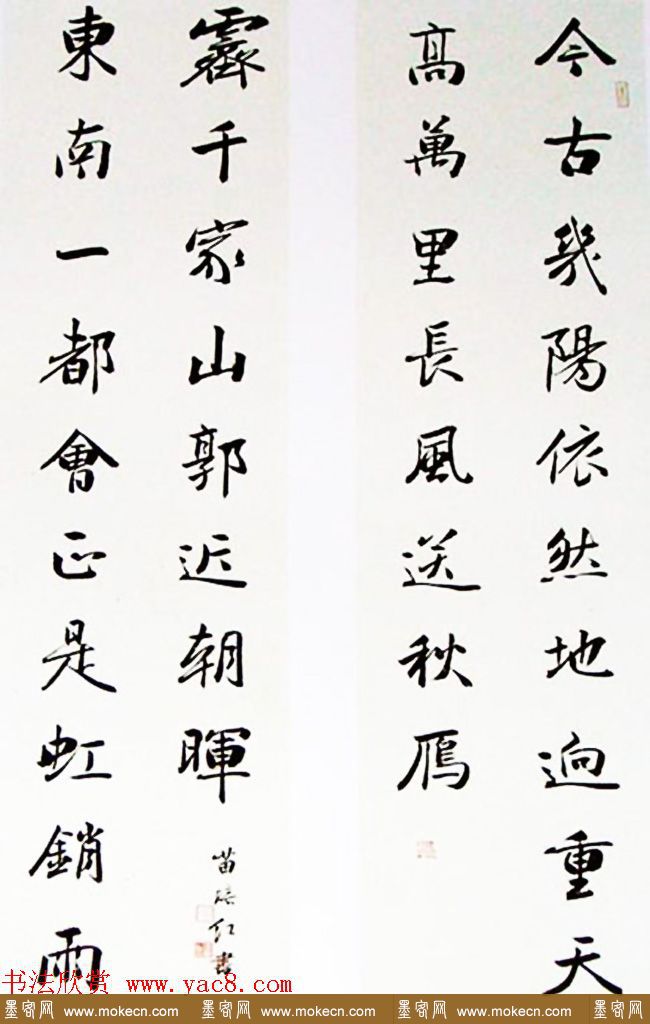 今古幾陽依然地迥重天
高萬里長風送秋鴈
東南一都會正是虹銷雨
霽千家山郭近朝暉
苗培红書
书法欣赏 www.yac8.com
墨客网 www.mokecn.com 墨客网 www.mokecn.com 墨客网 www.mokecn.com